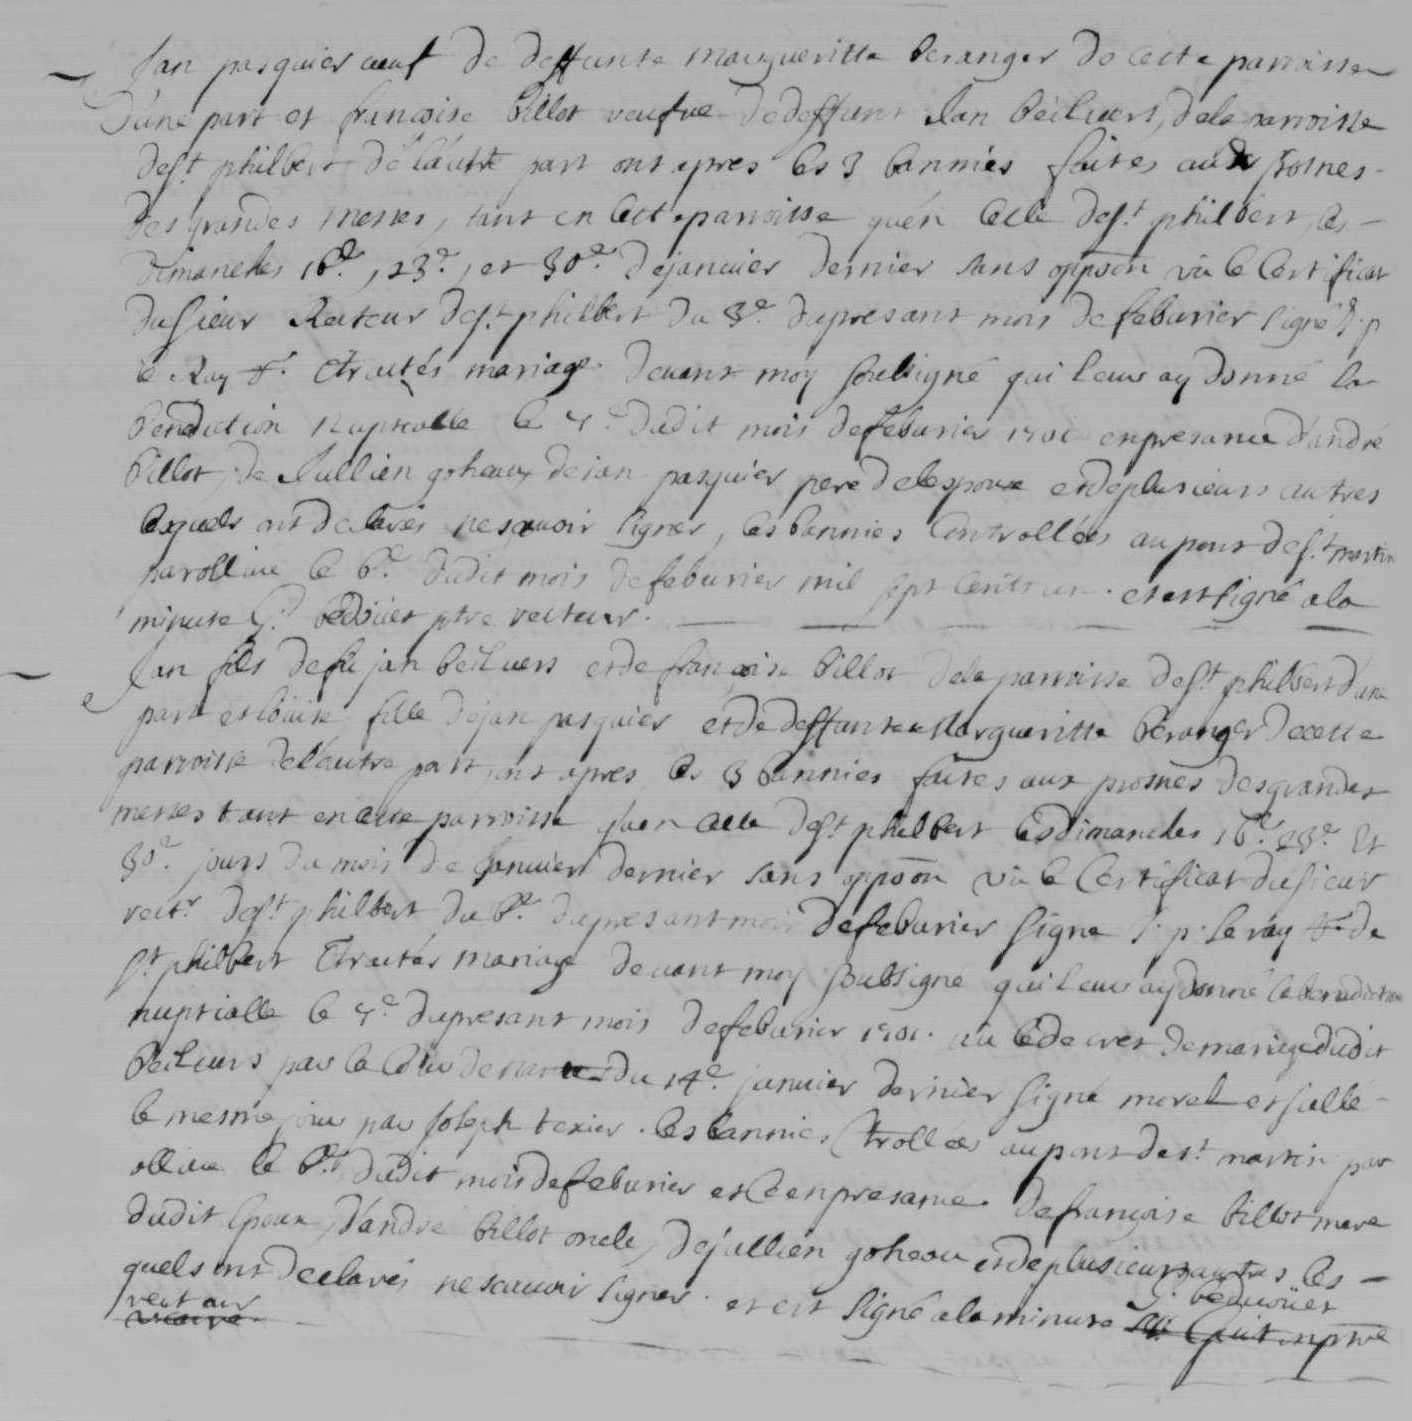 Jan pasquier veuf de deffunte margueritte beranger de cette parroisse
d'une part et francoise billot veufve de deffunt Jan beiluers, de la parroisse
de st philbert de l'autre part ont apres les 3 bannies faites aux prosnes
des grandes messes, tant en cette parroisse qu'en celle de st philbert, les
dimanches 16e, 23e, et 30e de janvier dernier sans oppson vû le certificat
du sieur Recteur de st philbert du 3e du presant mois de feburier signé J. p
le Ray Rr. Ctractés mariage devant moy soubsigné qui leur ay donné la
benediction nuptialle le 7e dudit mois de feburier 1701 en presance d'andré
billot, de Jullien goheau de ian pasquier pere de lespoux et de plusieurs autres
lesquels ont declarés ne scavoir signer, les bannies controllées au pont de st martin
par ollive le 6e dudit mois de feburier mil sept cent un. et est signé a la
minute G. bedouet ptre recteur.
Jan fils de fû jan beiluers et de françoise billot de la parroisse de st philbert d'une
part et louise fille de jan pasquier et de deffunte Margueritte beranger de cette
parroisse de l'autre part ont apres les 3 bannies faites aux prosnes des grandes
messes tant en cette parroisse qu'en celle de st philbert les dimanches 16e 23e et
30e jours du mois de Janvier dernier sans oppson vû le certificat du sieur
rectr de st philbert du 6e du presant mois de feburier signé J. p. le ray Rr de
st philbert Ctractés mariage devant moy soubsigné qui leur ay donné la benediction
nuptialle le 7e du presant mois de feburier 1701. vû le decret de mariage dudit
beiluers par la Cour de du 14e janvier dernier signé morel et sellé
le mesme jour par Joseph texier. les bannies Ctrollées au pont de st martin par
ollive le 6e dudit mois de feburier et ce en presance de françoise billot mere
dudit epoux, d'andré billot oncle, de jullien goheau et de plusieurs autres les
quels ont declarés ne scavoir signer. et est signé a la minute G. bedouet
recteur